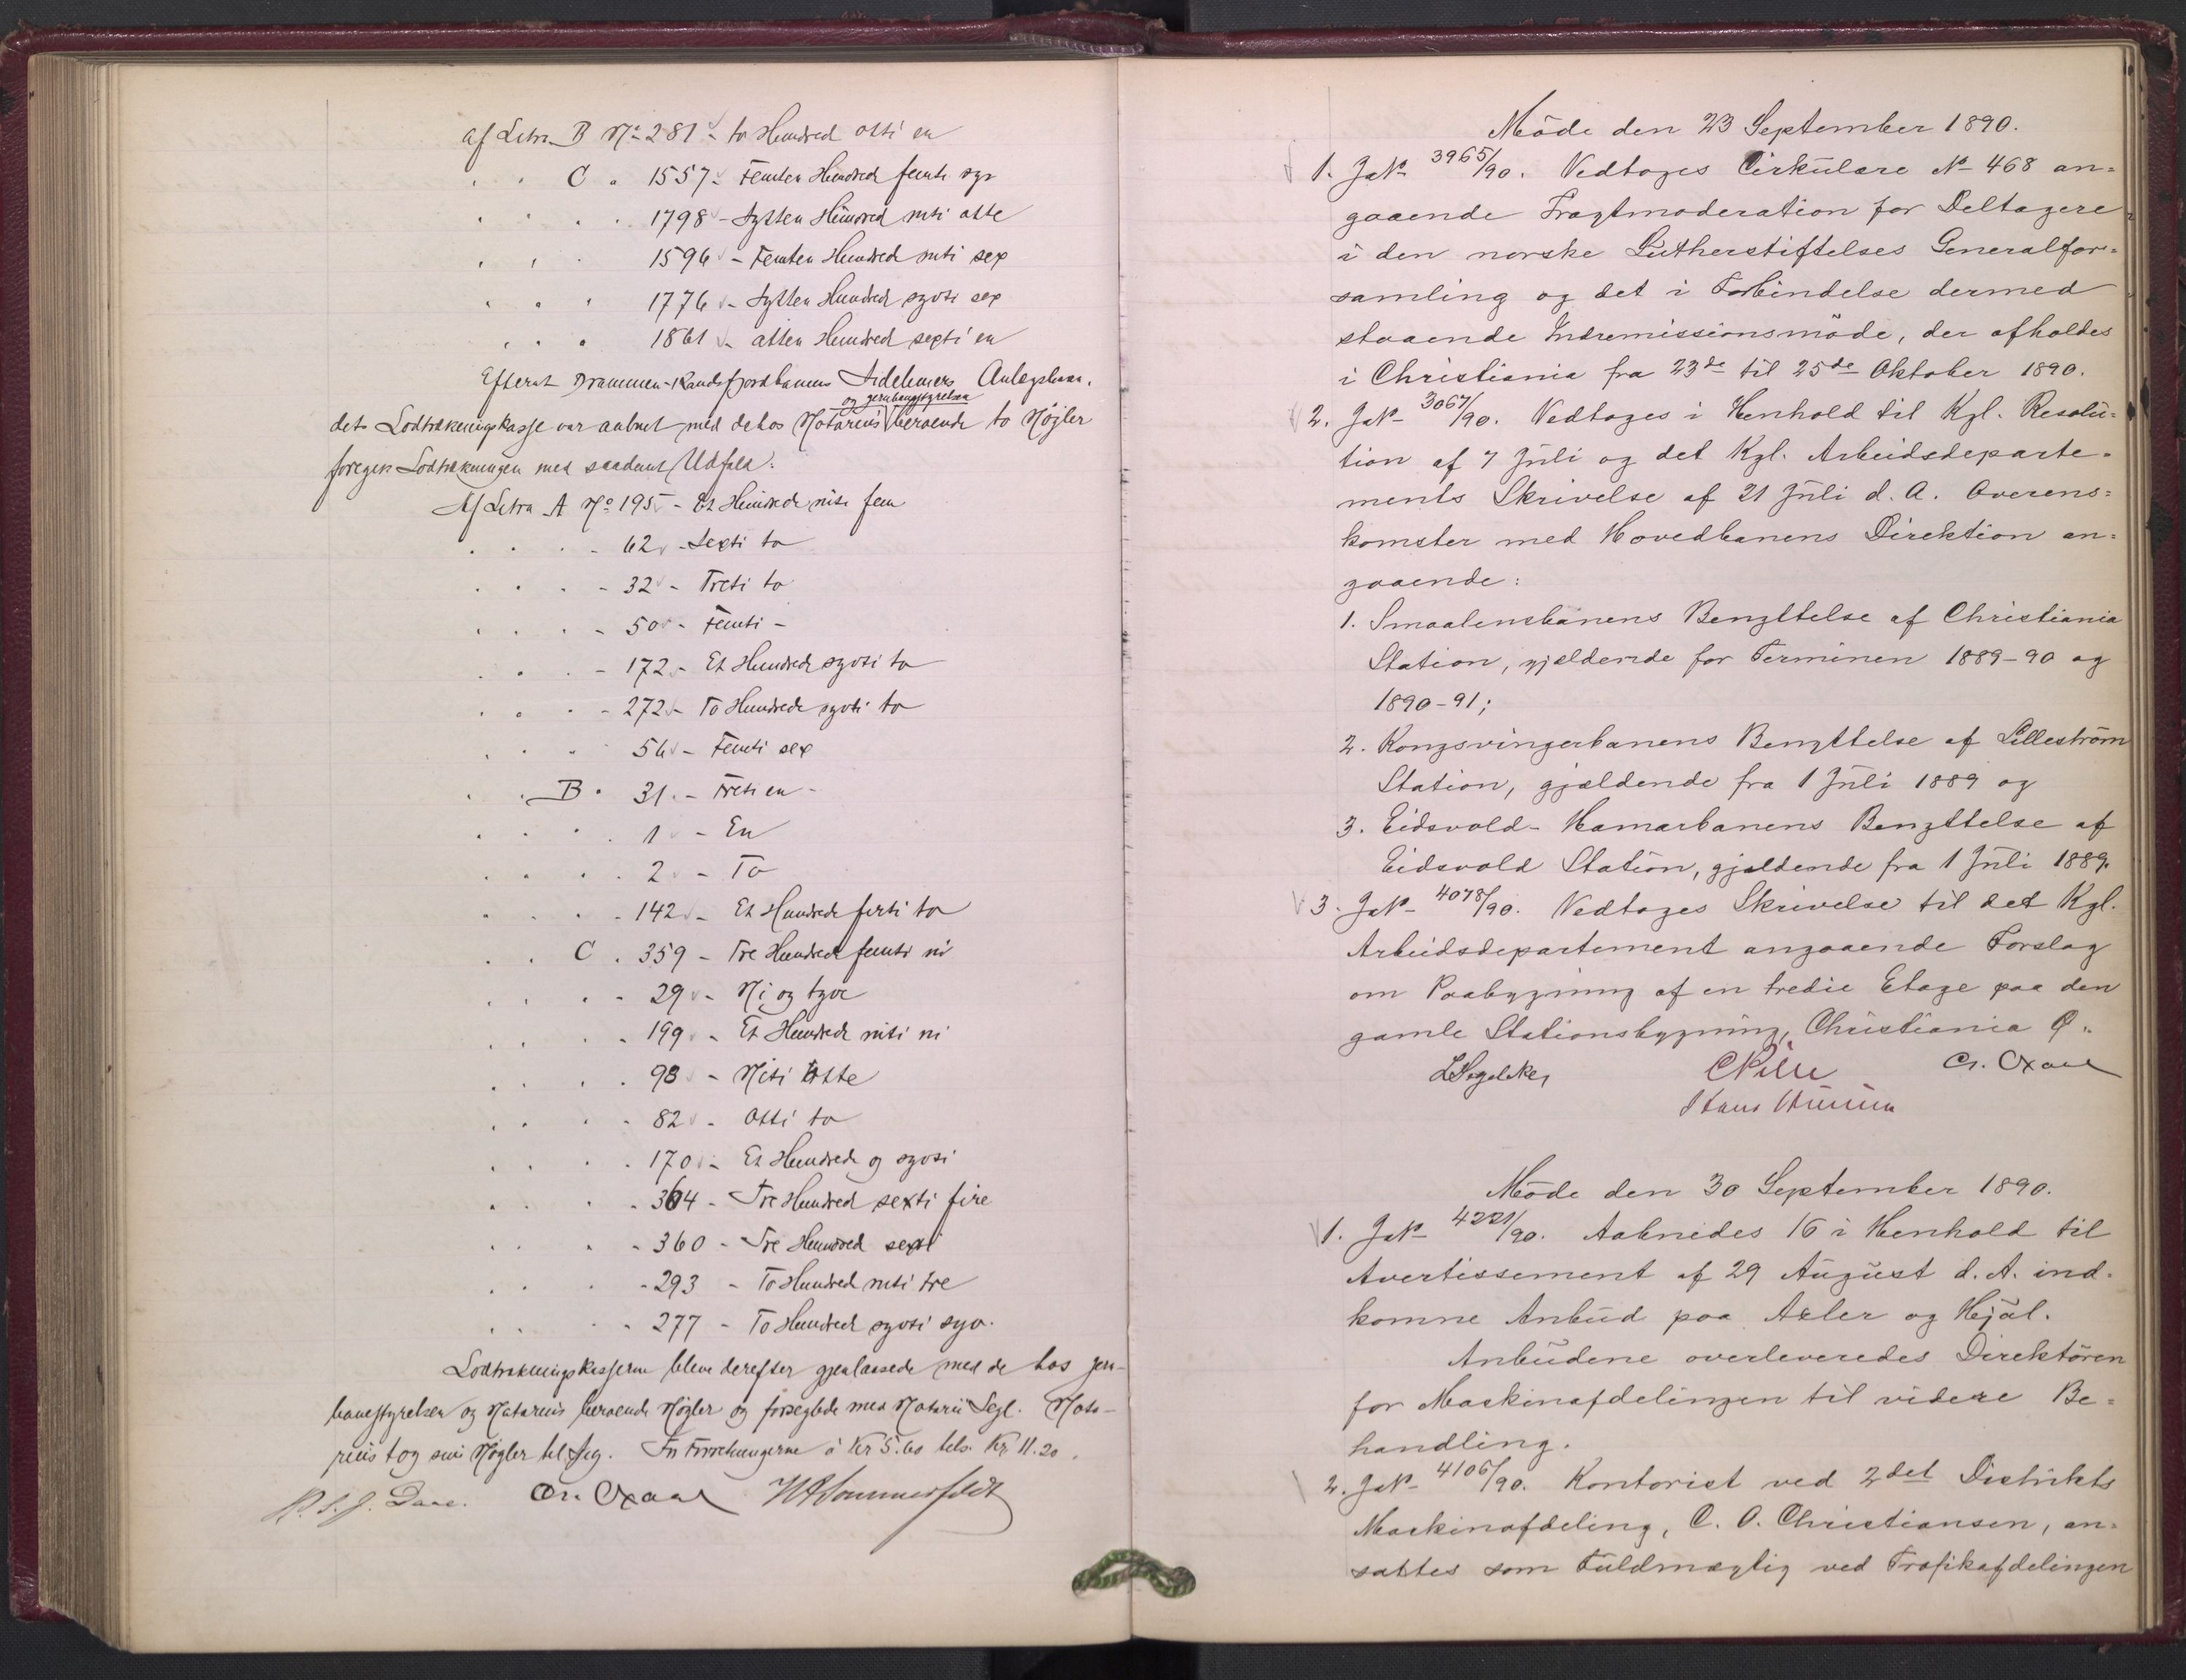 af Litra B No 281 - to Hundred otti en
" " C " 1557 - Femten Hundred femti syv
" " " " 1798 - Sytten Hundred niti otte
" " " 1596 - Femten Hundred niti sex
" " " 1776 - Sytten Hundred sytti sex
" " " 1861 - atten Hundred sexti en
Efterat Drammen-Randsfjordbanens Sideliniers Anlægslaan,
og Jernbanestyrelsen
dets Lodtrækningskasse var aabnet med de hos Notarius beroende to Nøgler
foregik Lodtrækningen med saadant Udfald:
Af Litra A No 195 - Et Hundrede niti fem
" " " - 62 - Sexti to
" " " - 32 - Treti to
" " " - 50 - Femti -
" " " - 172 - Et Hundrede sytti to
" " " - 272 - To Hundrede sytti to
" " " 56 - Femti sex
" " B " 31 - Treti en -
" " " " 1 - En
" " " " 2 - To
" " " - 142 - Et Hundrede firti to
" " C " 359 - Tre Hundrede femti ni
" " " - 29 - Ni og tyve
" " " - 199 - Et Hundrede niti ni
" " " " 98 - Niti Otte
" " " - 82 - Otti to
" " " " 170 - Et Hundrede og sytti
" " " - 364 - Tre Hundred sexti fire
" " " - 360 - Tre Hundred sexti
" " " - 293 - To Hundred niti tre
" " " - 277 - To Hundred sytti syv.
Lodtrækningskasserne bleve derefter gjenlaasede med de hos Jern-
banestyrelsen og Notarius beroende Nøgler og forseglede med Notarii Segl. Nota-
rius tog sine Nøgler til Sig. For Forretningerne à Kr 5.60 tils. Kr. 11.20.
Cr. Oxaal H Sommerfeldt
Möde den 23 September 1890.
1. JaNo 3965/90. Vedtoges Cirkulære No 468 an=
gaaende Fragtmoderation for Deltagere
i den norske Lutherstiftelses Generalfor=
samling og det i Forbindelse dermed
staaende Indremissionsmöde, der afholdes
i Christiania fra 23de til 25de Oktober 1890.
2. JaNo 3067/90. Vedtoges i Henhold til Kgl. Resolu=
tion af 7 Juli og det Kgl. Arbeidsdeparte=
ments Skrivelse af 21 Juli d. A. Overens=
komster med Hovedbanens Direktion an=
gaaende:
1. Smaalensbanens Benyttelse af Christiania
Station, gjældende for Terminen 1889-90 og
1890-91;
2. Kongsvingerbanens Benyttelse af Lilleström
Station, gjældende fra 1 Juli 1889 og
3. Eidsvold-Hamarbanens Benyttelse af
Eidsvold Station, gjældende fra 1 Juli 1889.
3. JaNo 4078/90. Vedtoges Skrivelse til det Kgl.
Arbeidsdepartement angaaende Forslag
om Paabygning af en tredie Etage paa den
gamle Stationsbygning, Christiania Ø.
LSegelcke CPihl Cr. Oxaal
Möde den 30 September 1890.
1. JaNo 4221/90. Aabnedes 16 i Henhold til
Avertissement af 29 August d. A. ind=
komne Anbud paa Axler og Hjul.
Anbudene overleveredes Direktören
for Maskinafdelingen til videre Be=
handling.
2. JaNo 4106/90. Kontorist ved 2det Distrikts
Maskinafdeling, C. O. Christiansen, an=
sattes som Fuldmægtig ved Trafikafdelingen